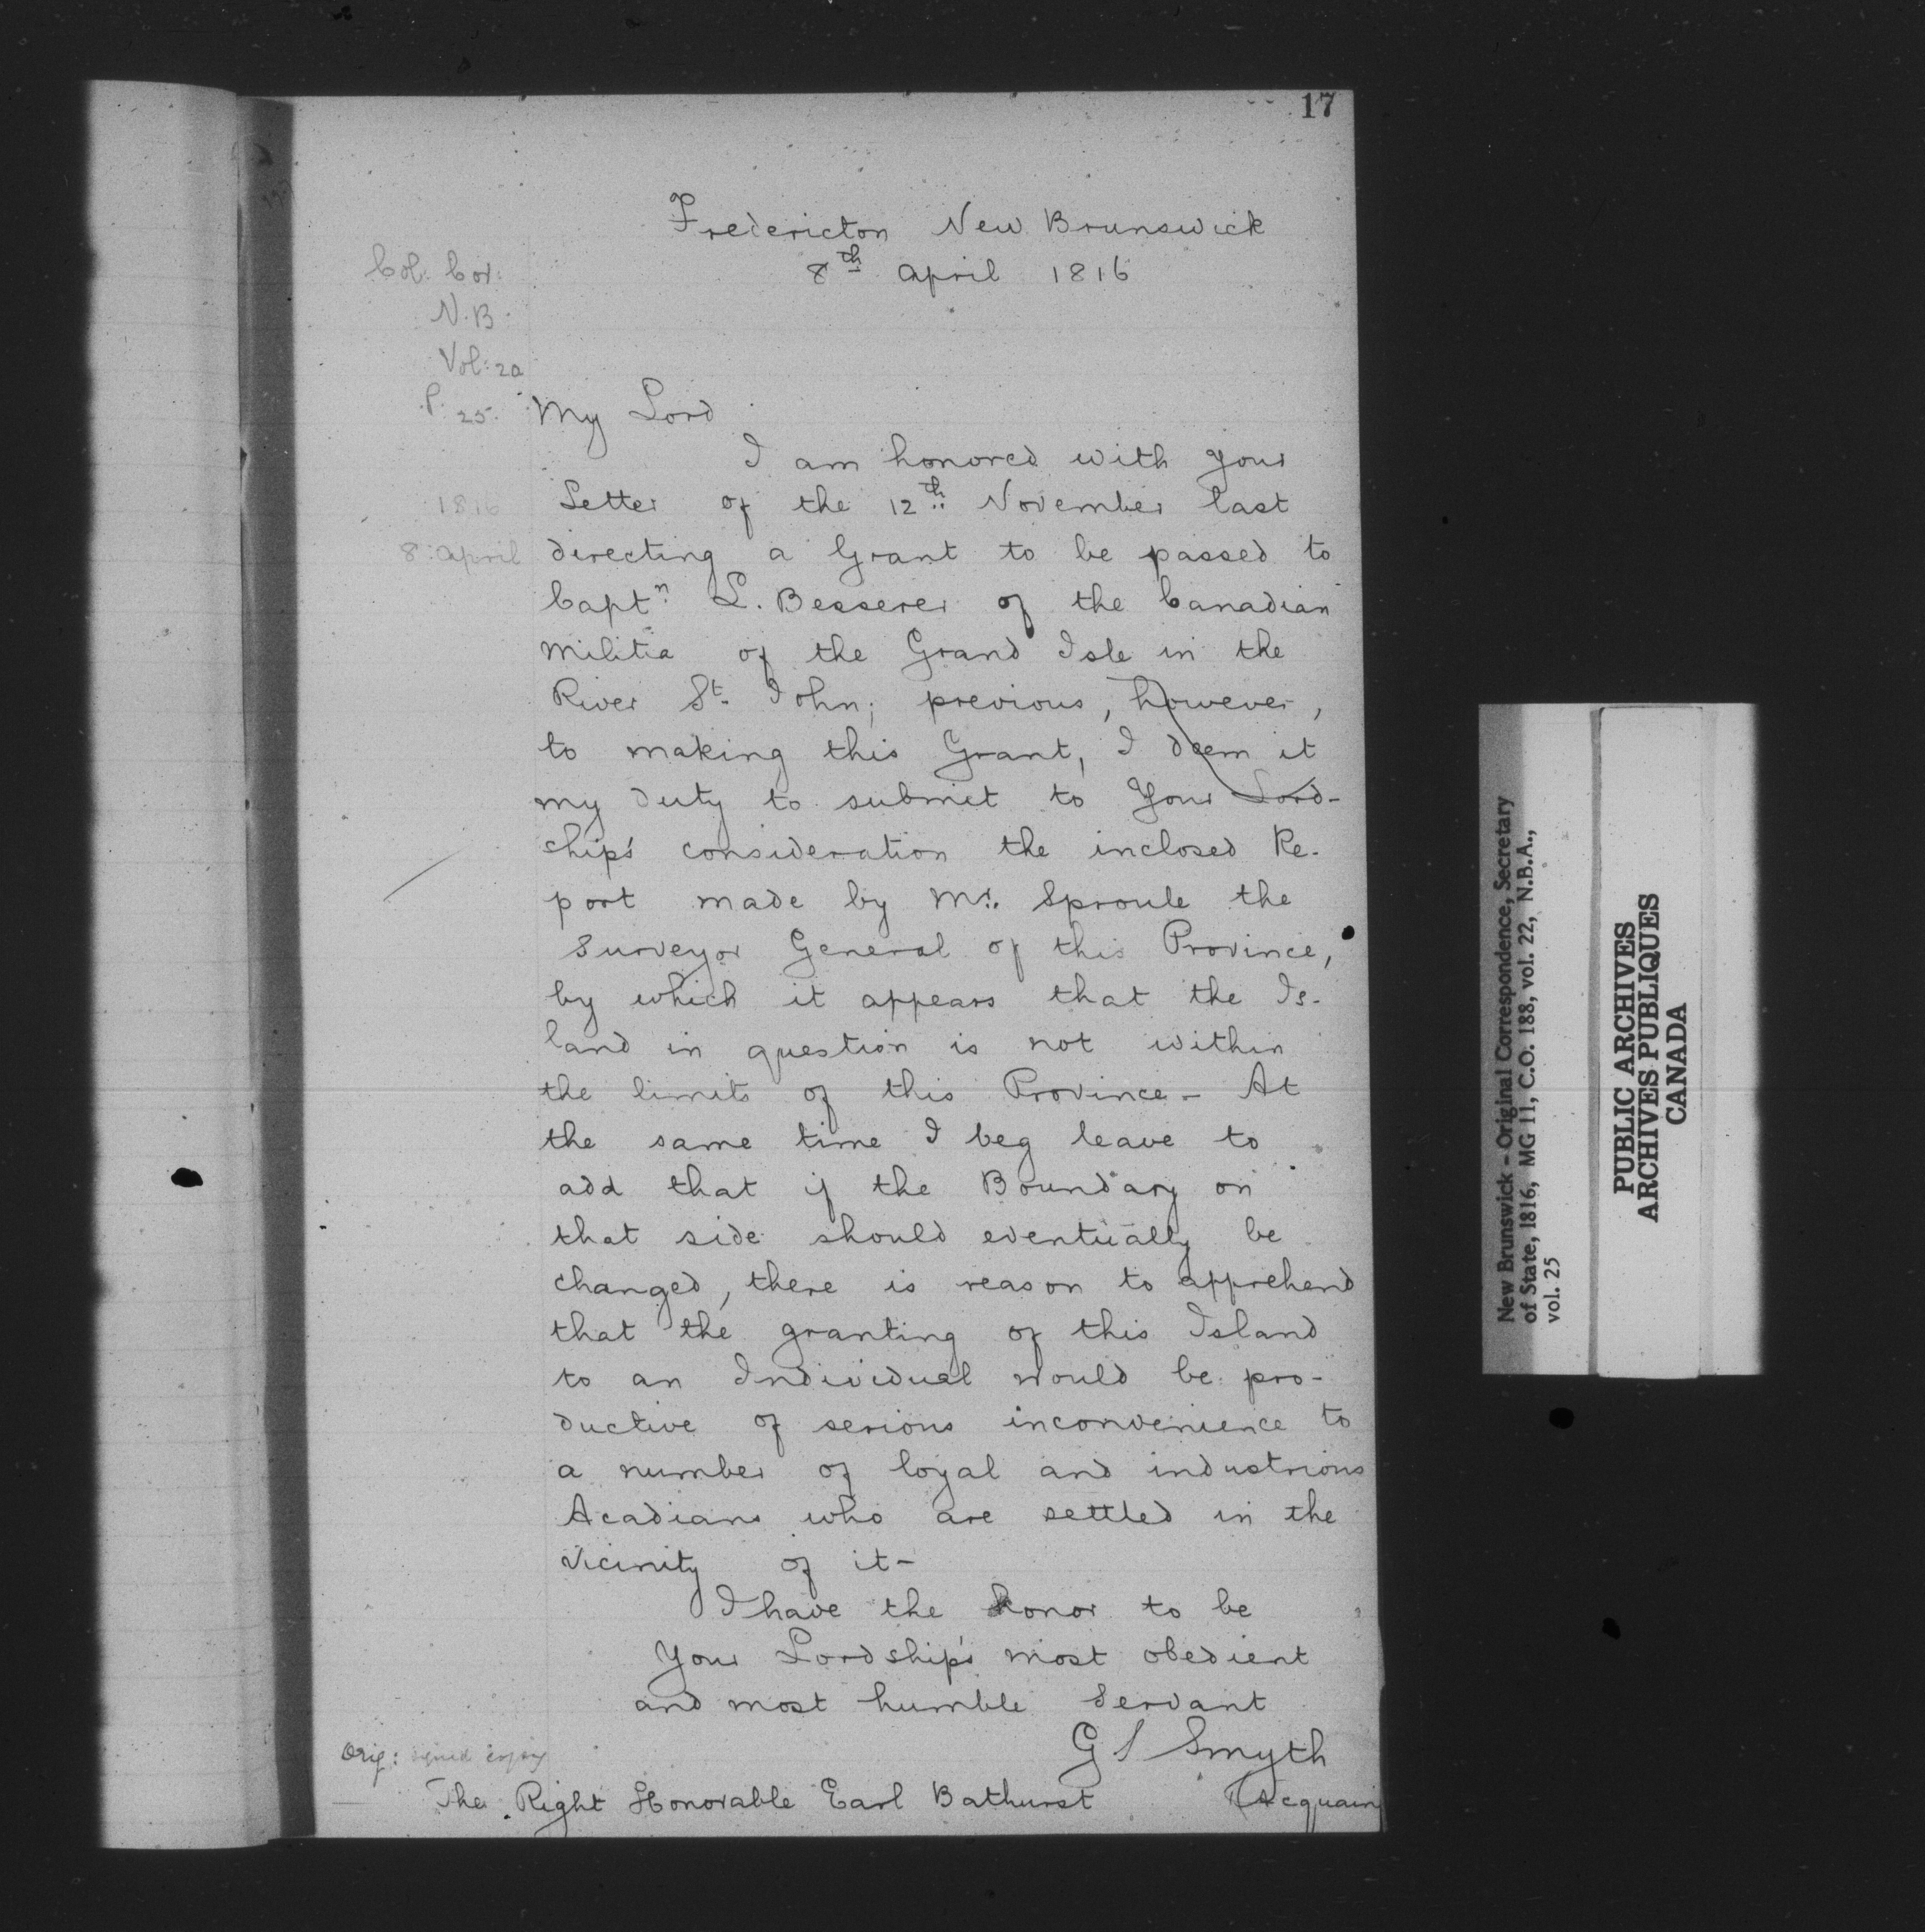 17
Fredericton New Brunswick
8th April 1816
Col. Cor:
N.B.
Vol: 2a
P. 25.
My Lord
I am honored with your
1816
Letter of the 12th November last
8: April
directing a Grant to be passed to
Captn L. Besserer of the Canadian
Militia of the Grand Isle in the
River St. John; previous, however,
to making this Grant, I deem it
my duty to submit to Your Lord-
ship's consideration the inclosed Re-
port made by Mr. Sproule the
Surveyor General of this Province,
by which it appears that the Is-
land in question is not within
the limits of this Province - At
the same time I beg leave to
add that if the Boundary on
that side should eventually be
changed, there is reason to apprehend
that the granting of this Island
to an Individual would be pro-
ductive of serious inconvenience to
a number of loyal and industrious
Acadians who are settled in the
vicinity of it -
I have the honor to be
Your Lordship's most obedient
and most humble Servant
G S Smyth
Orig: signed copy
The Right Honorable Earl Bathurst
New Brunswick - Original Correspondence, Secretary
of State, 1816, MG 11, C.O. 188, vol. 22, N.B.A.,
vol. 25
PUBLIC ARCHIVES
ARCHIVES PUBLIQUES
CANADA